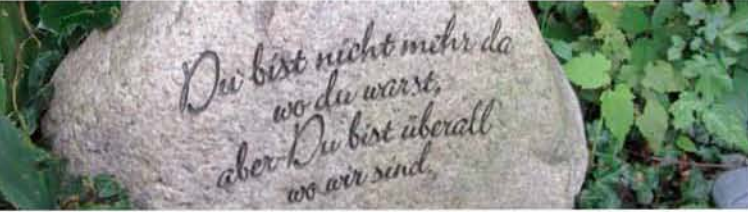 Du bist nicht mehr da
wo du warst,
aber Du bist überall
wo wir sind.